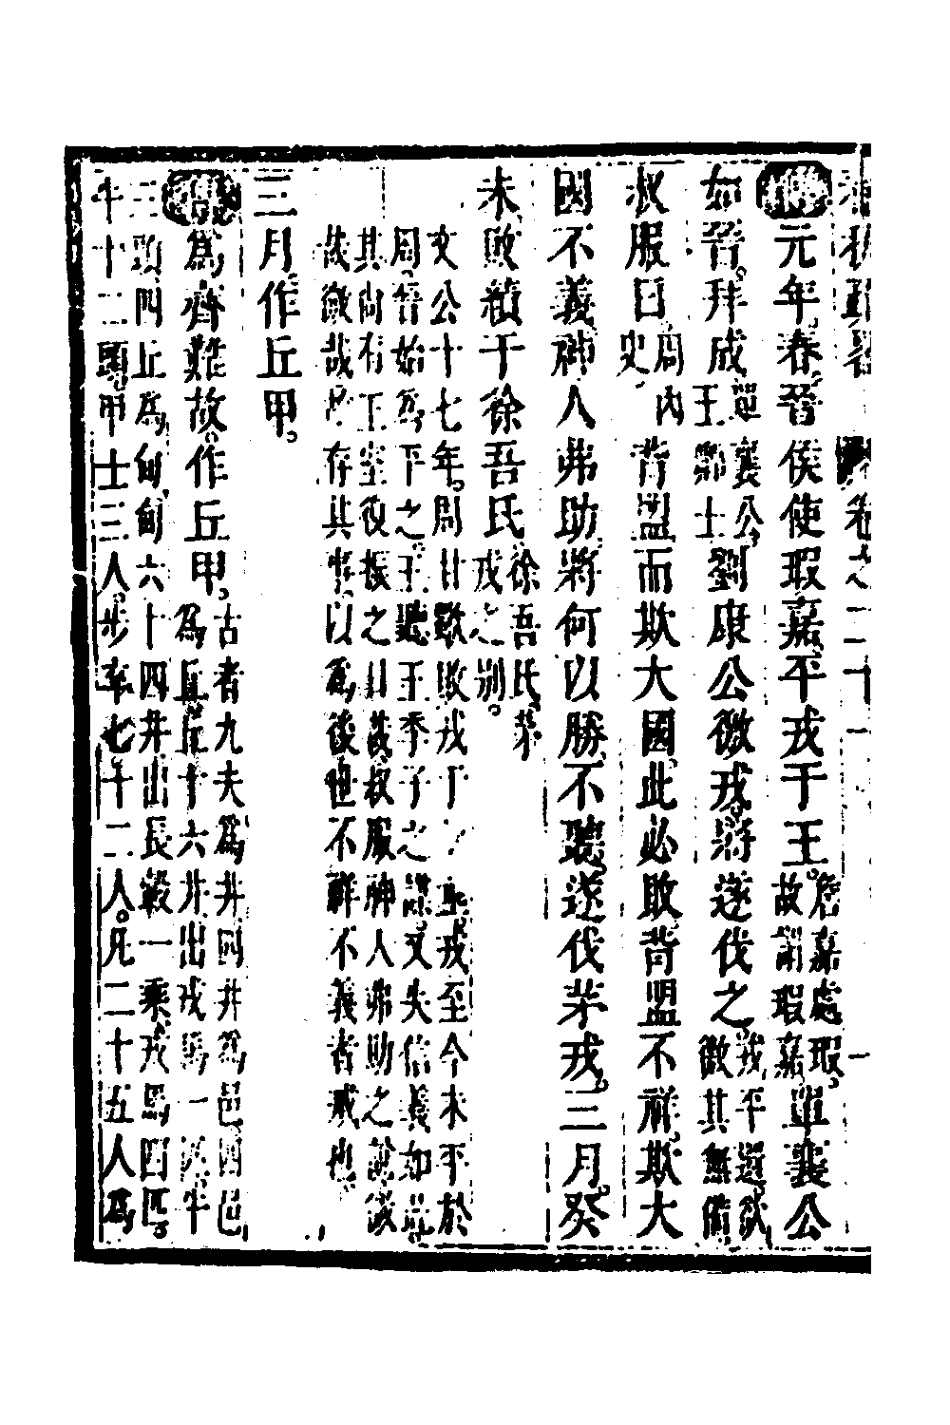 卷之二十一
傳元年春晉侯使瑕嘉平戎于王詹嘉處瑕故謂瑕嘉單襄公
如晉拜成單襄公王卿士劉康公徼戎將遂伐之戎平還欲徼其無備
叔服曰周內史背盟而欺大國此必敗背盟不祥欺大
國不義神人弗助將何以勝不聽遂伐茅戎三月癸
未敗績于徐吾氏徐吾氏茅戎之別
文公十七年周甘歜敗戎于垂戎至今未平於
周晉始爲平之王聽王季子之謀又失信義如此
其尚有王室役振之日哉叔服神人弗助之說誠
哉徼哉故存其事以爲後世不祥不義者戒也
三月作丘甲
傳爲齊難故作丘甲古者九夫爲井四井爲邑四邑爲丘丘十六井出戎馬一匹牛
三頭四丘爲甸甸六十四井出長轂一乘戎馬四匹
牛十二頭甲士三人步卒七十二人凡二十五人爲